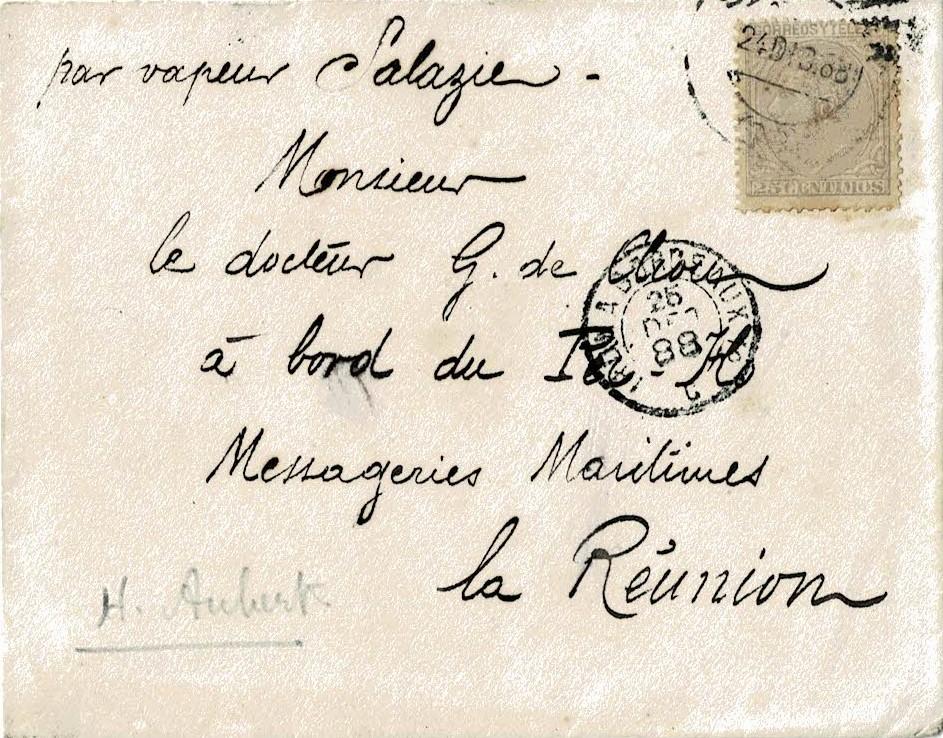 par vapeur Salazie -
CORREOS Y TELEG
24 DIC. 88
25 CENTIMOS
Monsieur
le docteur G. de
25
88
à bord du
Messageries Maritimes
la Réunion
H. Aubert